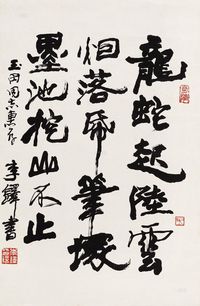 龍蛇起陸雲
烟落帋筆塚
墨池挖山不止
同志
李鐸書